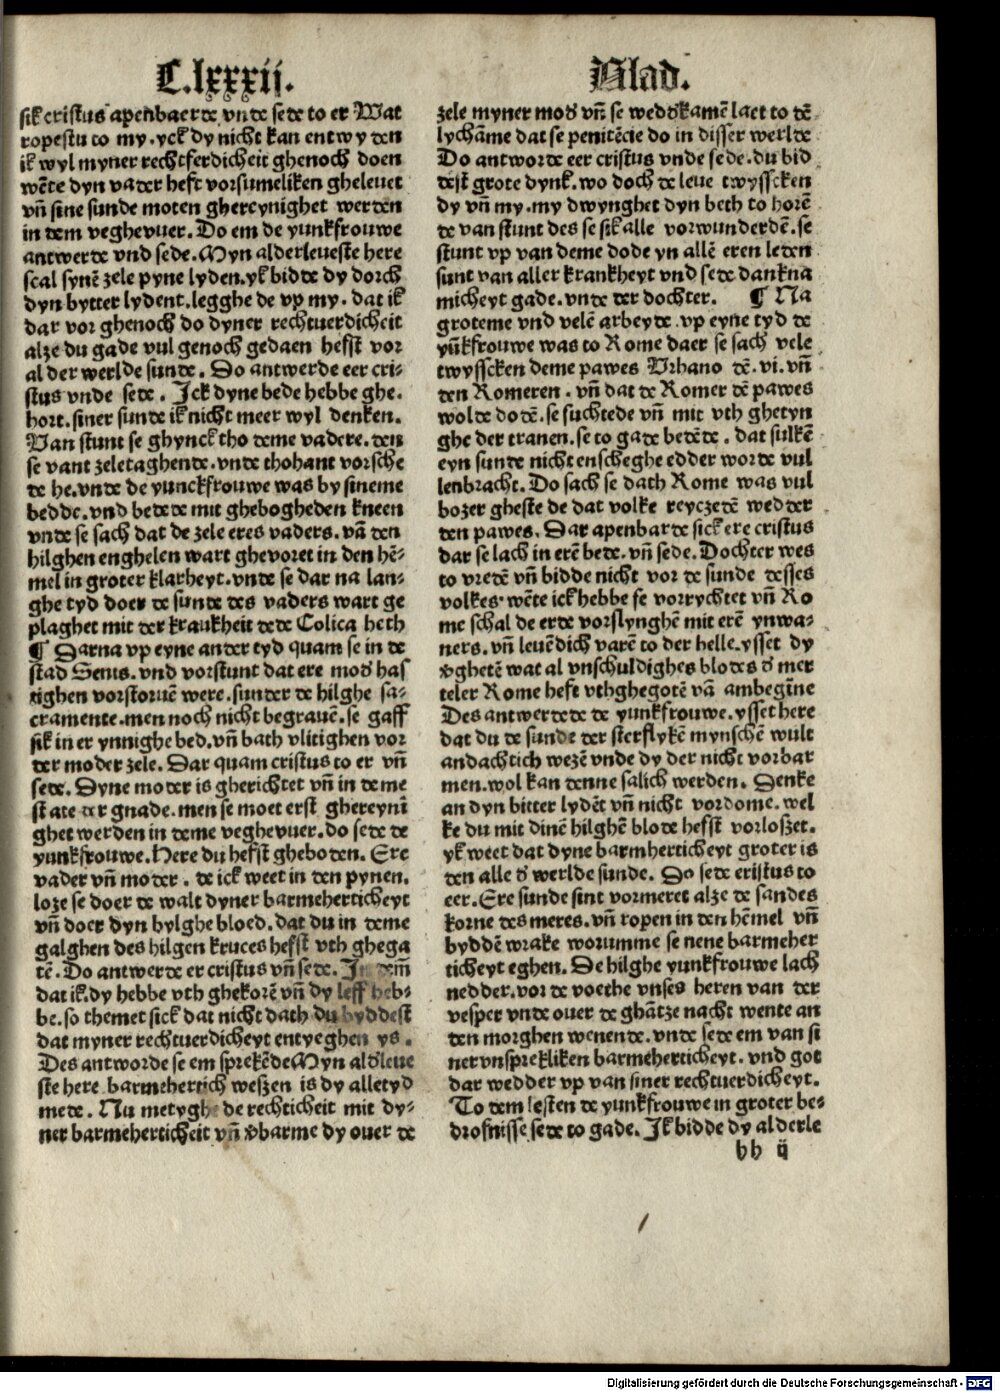 C.lxxxij. Blad.
sik cristus apenbaerde vnde sede to er Wat
ropestu to my.yck dy nicht kan entwyden
ik wyl myner rechtferdicheit ghenoch doen
wēte dyn vader heft vorsumeliken gheleuet
vn̄ sine sunde moten ghereynighet werden
in dem veghevuer. Do em de yunkfrouwe
antwerde vnd sede. Myn alderleueste here
scal synē zele pyne lyden.yk bidde dy dorch
dyn bytter lydent.legghe de vp my. dat ik
dar vor ghenoch do dyner rechtuerdicheit
alze du gade vul genoch gedaen hefst vor
al der werlde sunde. Do antwerde eer cri-
stus vnde sede. Jck dyne bede hebbe ghe-
hort.siner sunde ik nicht meer wyl denken.
Van stunt se ghynck tho deme vadere.den
se vant zeletaghende.vnde thohant vorsche
de he.vnde de yunckfrouwe was by sineme
bedde.vnd bedede mit ghebogheden kneen
vnde se sach dat de zele eres vaders.vā den
hilghen enghelen wart ghevoret in den hē-
mel in groter klarheyt.vnde se dar na lan-
ghe tyd doer de sunde des vaders wart ge
plaghet mit der kraukheit dede Colica heth
¶ Darna vp eyne ander tyd quam se in de
stad Senis.vnd vorstunt dat ere mod̄ has
tighen vorstoruē were.sunder de hilghe sa-
cramente.men noch nicht begrauē.se gaff
sik in er ynnighe bed.vn̄ bath vlitighen vor
der moder zele. Dar quam cristus to er vn̄
sede. Dyne moder is gherichtet vn̄ in deme
state der gnade.men se moet erst ghereyni
ghet werden in deme veghevuer.do sede de
yunkfrouwe.Here du hefst gheboden. Ere
vader vn̄ moder. de ick weet in den pynen.
loze se doer de walt dyner barmeherticheyt
vn̄ doer dyn hylghe bloed.dat du in deme
galghen des hilgen kruces hefst vth ghega
tē.Do antwerde er cristus vn̄ sede. Jn dem̄
dat ik.dy hebbe vth ghekorē vn̄ dy leff heb-
be.so themet sick dat nicht dath du byddest
dat myner rechtuerdicheyt entyeghen ys.
Des antworde se em sprekēde Myn ald̄leue
ste here barmehertich weszen is dy alletyd
mede. Nu metyghe de rechticheit mit dy-
ner barmeherticheit vn̄ v̄barme dy ouer de
zele myner mod̄ vn̄ se wedd̄kamē laet to dē
lychāme dat se penitēcie do in disser werlde
Do antworde eer cristus vnde sede.du bid
dest grote dynk.wo doch de leue twysscken
dy vn̄ my.my dwynghet dyn beth to horē
de van stunt des se sik alle vorwunderdē.se
stunt vp van deme dode yn allē eren leden
sunt van aller krankheyt vnd sede dankna
micheyt gade.vnde der dochter. ¶ Na
groteme vnd velē arbeyde.vp eyne tyd de
yūkfrouwe was to Rome daer se sach vele
twysscken deme pawes Vrbano dē.vi.vn̄
den Romeren. vn̄ dat de Romer dē pawes
wolde dodē.se suchtede vn̄ mit vth ghetyn
ghe der tranen.se to gade bedēde. dat sulkē
eyn sunde nicht enscheghe edder worde vul
lenbracht.Do sach se dath Rome was vul
bozer gheste de dat volke reyczedē wedder
den pawes. Dar apenbarde sick ere cristus
dar se lach in erē bede.vn̄ sede.Dochter wes
to vredē vn̄ bidde nicht vor de sunde desses
volkes.wēte ick hebbe se vorrychtet vn̄ Ro
me schal de erde vorslynghē mit erē ynwa-
ners.vn̄ leuēdich varē to der helle.ysset dy
v̄ghetē wat al vnschuldighes blodes d̄ mer
teler Rome heft vthghegotē vā ambegīne
Des antwerdede de yunkfrouwe.ysset here
dat du de sunde der sterflykē mynschē wult
andachtich wezē vnde dy der nicht vorbar
men.wol kan denne salich werden. Denke
an dyn bitter lydēt vn̄ nicht vordome.wel
ke du mit dinē hilghē blode hefst vorloszet.
yk weet dat dyne barmherticheyt groter is
den alle d̄ werlde sunde. Do sede cristus to
eer.Ere sunde sint vormeret alze de sandes
korne des meres.vn̄ ropen in den hēmel vn̄
byddē wrake worumme se nene barmeher
ticheyt eghen. De hilghe yunkfrouwe lach
nedder.vor de voethe vnses heren van der
vesper vnde ouer de ghātze nacht wente an
den morghen wenende.vnde sede em van si
ner vnsprekliken barmeherticheyt.vnd got
dar wedder vp van siner rechtuerdicheyt.
To dem lesten de yunkfrouwe in groter be-
drofnisse sede to gade. Jk bidde dy alderle
bb ij
Digitalisierung gefördert durch die Deutsche Forschungsgemeinschaft - DFG